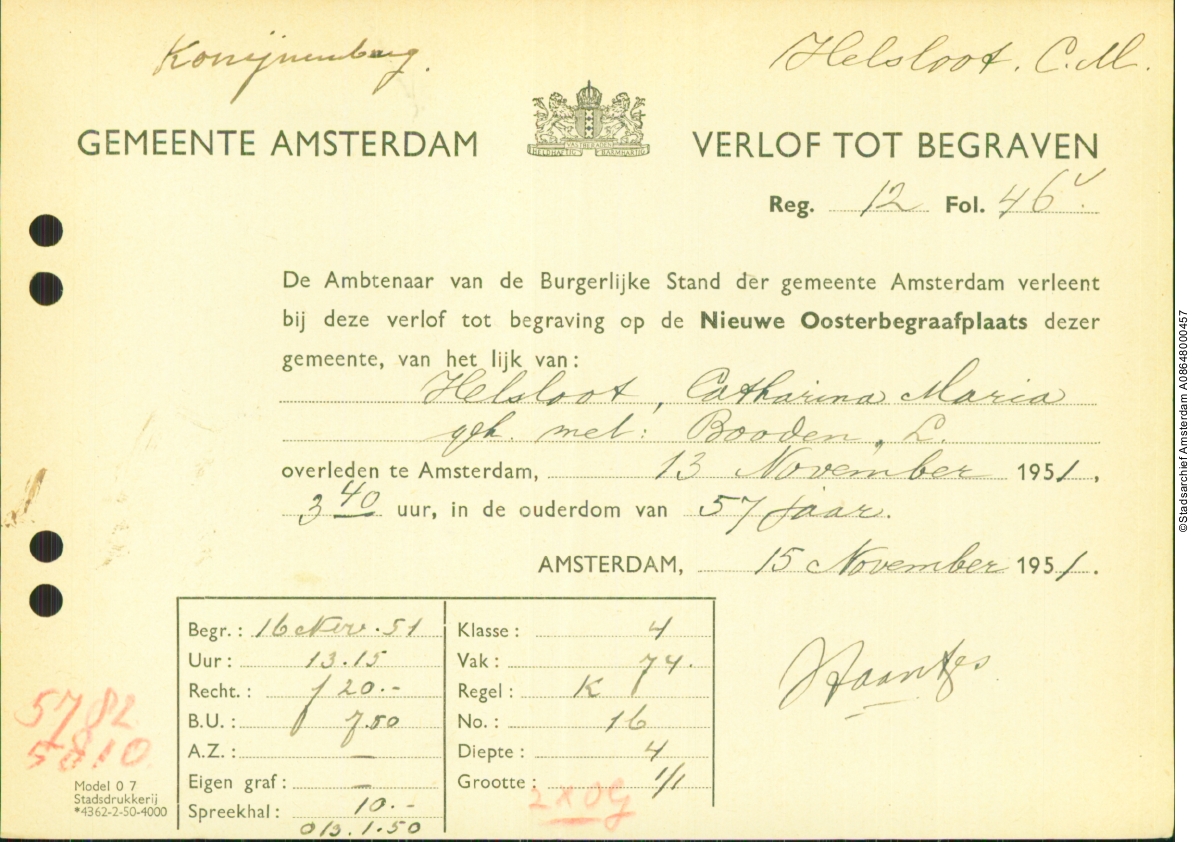 Konijnenburg.
Helsloot. C.M.
GEMEENTE AMSTERDAM
HELDHAFTIG VASTBERADEN BARMHARTIG
VERLOF TOT BEGRAVEN
Reg. 12 Fol. 46v.
De Ambtenaar van de Burgerlijke Stand der gemeente Amsterdam verleent
bij deze verlof tot begraving op de Nieuwe Oosterbegraafplaats dezer
gemeente, van het lijk van:
Helsloot, Catharina Maria
geh. met: Booden, L.
overleden te Amsterdam, 13 November 1951,
3 40 uur, in de ouderdom van 57 jaar.
AMSTERDAM, 15 November 1951.
Begr.: 16 Nov. 51
Uur: 13.15
Recht.: f 20.-
B.U.: 7.50
A.Z.: —
Eigen graf: —
Spreekhal: 10.-
1.50
Klasse: 4
Vak: 74.
Regel: K
No.: 16
Diepte: 4
Grootte: 1/1
2 x OG
Haantjes
5782
5810
Model 0 7
Stadsdrukkerij
*4362-2-50-4000
©Stadsarchief Amsterdam A08648000457